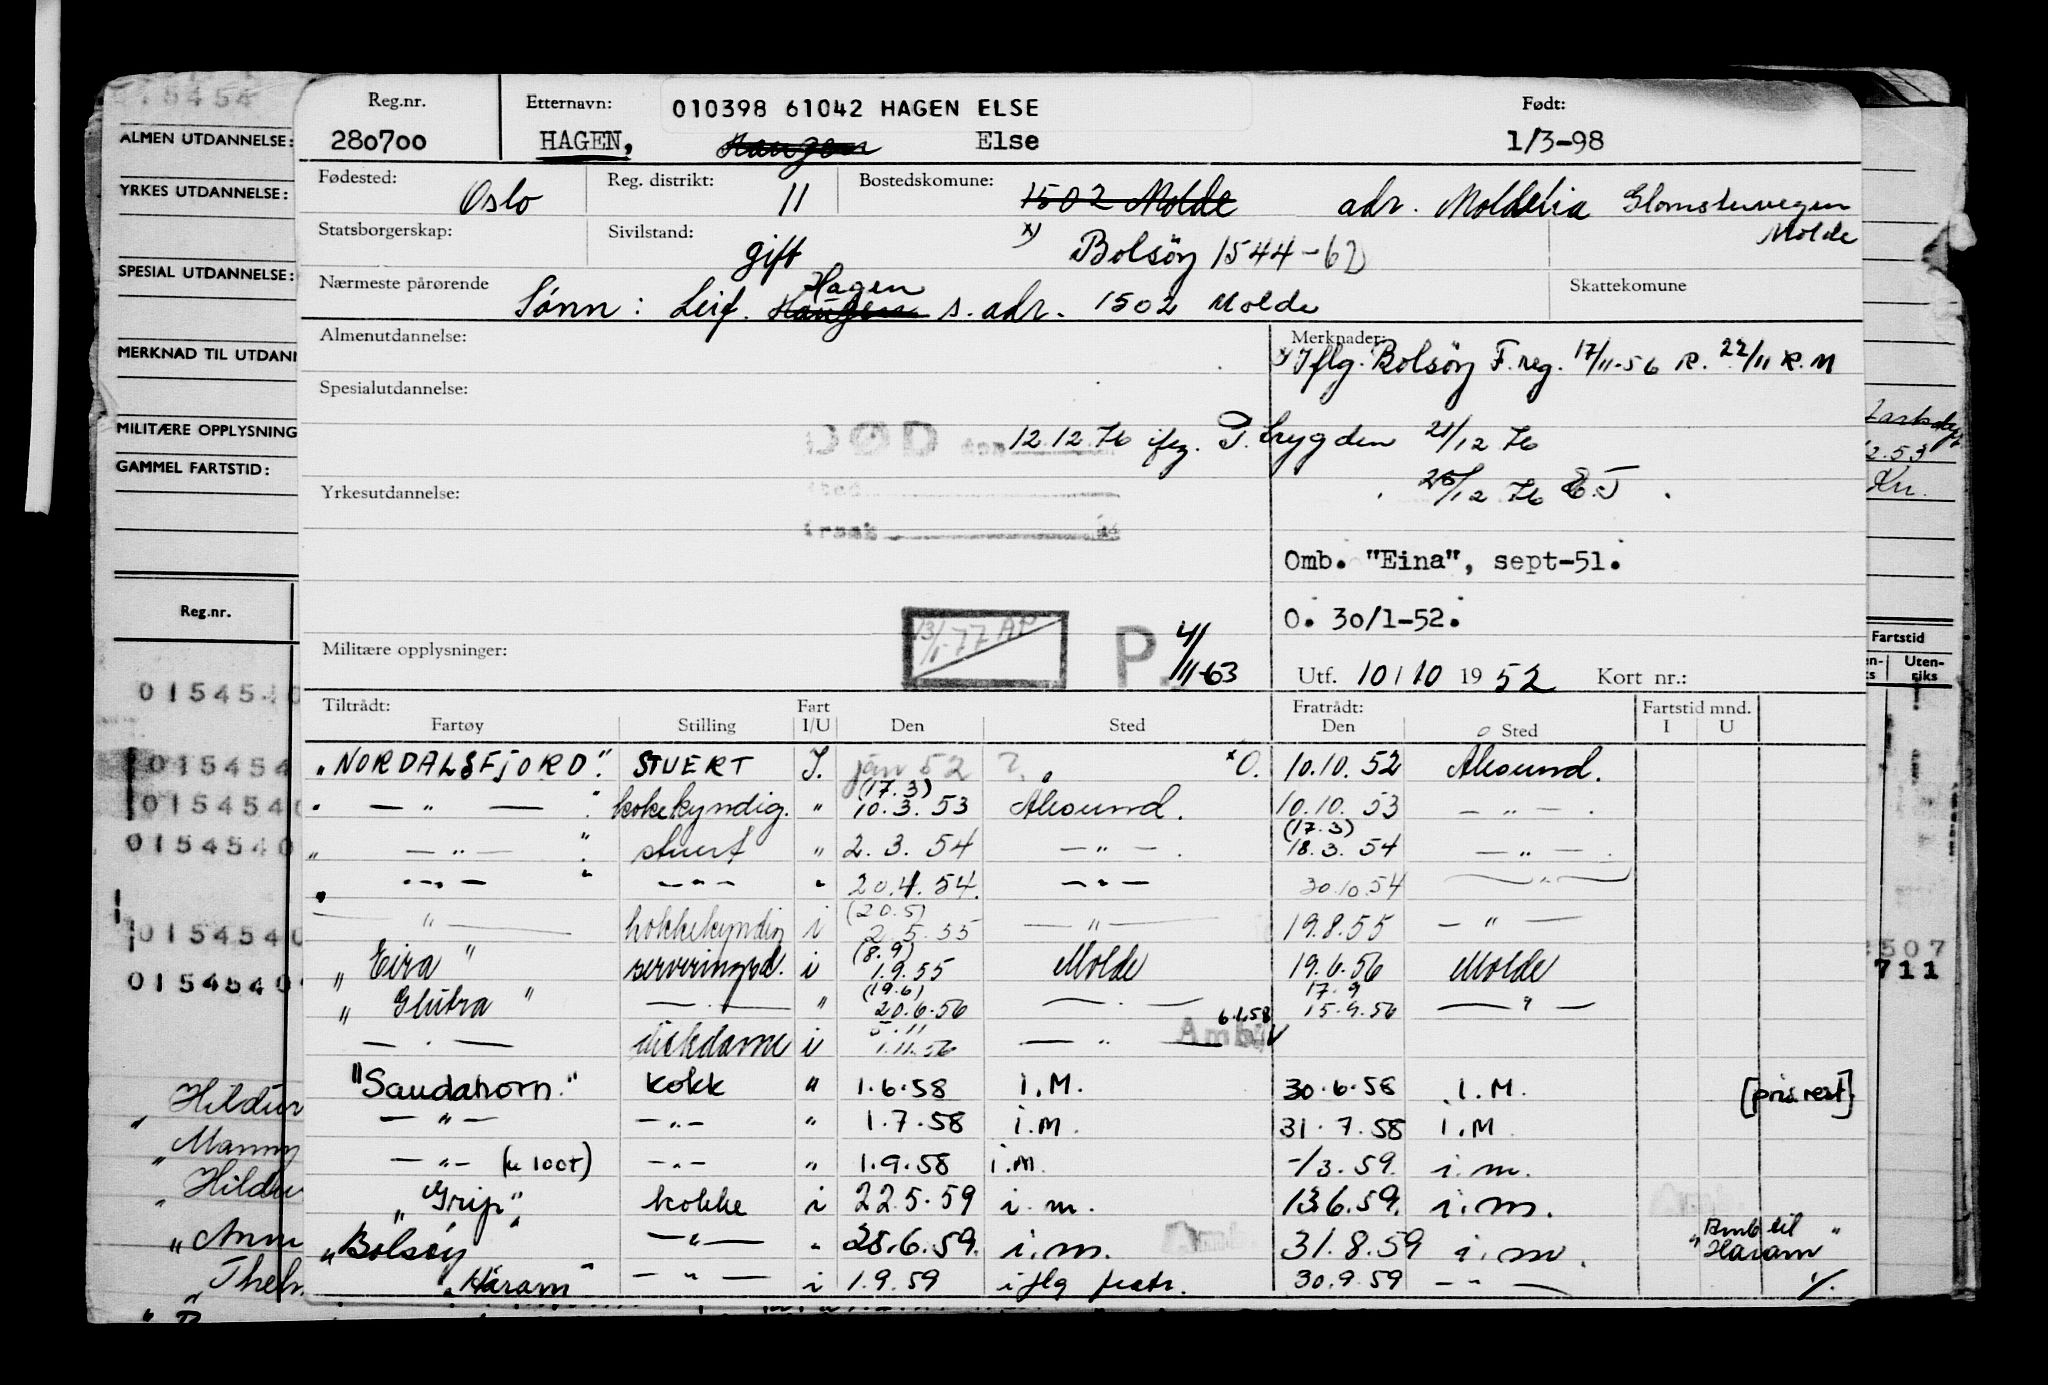 Reg.nr. Etternavn: 010398 61042 HAGEN ELSE Født:
280700 HAGEN, Else 1/3-98
Fødested: Oslo Reg. distrikt: 11 Bostedskomune: 1502 Molde adr. Moldelia Glomstuvegen
Molde
Statsborgerskap: Sivilstand: gift x) Bolsöy 1544-62
Nærmeste pårørende Skattekomune
Sönn: Leif. Hagen s. adr. 1502 Molde
Almenutdannelse: Merknader:
x) Iflg. Bolsöy F.reg. 17/11-56 R. 22/11 R.M
Spesialutdannelse:
DØD den 12.12.76 ifg. T.trygden 21/12 76
Yrkesutdannelse: 28/12 76
Årsak
Omb. "Eina", sept-51.
O. 30/1-52.
13/1-77 AP P. 4/11-63
Militære opplysninger: Utf. 10/10 1952 Kort nr.:
Tiltrådt: Fart Fratrådt: Fartstid mnd.
Fartøy Stilling I/U Den Sted Den Sted I U
"NORDALSFJORD". STUERT I. jan 52 ? *O. 10.10.52 Ålesund.
(17.3)
" — " — " kokekyndig. " 10.3.53 Ålesund. 10.10.53 — " — .
(17.3)
" — " — " stuert " 2.3.54 — " — . 18.3.54 — " — .
" — " — " — " — " 20.4.54. — " — 30.10.54 — " —
(20.5)
— " — kokkekyndig i 2.5.55 — " — 19.8.55 — " —
(8.9)
"Eira" serveringsd. i 1.9.55 Molde 19.6.56 Molde
(19.6) 17.9
"Glutra" — . — " 20.6.56 — . — 15.9.56 — " —
5.11 6.1.58
— . — dekdame i 1.11.56 — " — Amb.
"Saudahorn." kokk " 1.6.58 i.M. 30.6.58 i.M. [pris.rest]
— " — — " — " 1.7.58 i.M. 31.7.58 i.M.
— " — (u 100T) — " — " 1.9.58 i.M. -/3.59. i.m.
"Grip" kokke i 22.5.59 i.m. 13.6.59. i.m.
"Bolsöy" — " — " 28.6.59. i.m. 31.8.59 i.m. "Amb til Haram"
"Haram" — " — i 1.9.59 iflg fratr. 30.9.59 — " — ./.
ALMEN UTDANNELSE:
YRKES UTDANNELSE:
SPESIAL UTDANNELSE:
MERKNAD TIL UTDANN
MILITÆRE OPPLYSNING
GAMMEL FARTSTID:
Reg.nr.
015454
0154540
015454
0154540
0154540
0154540
0154540
Hildur
Manny
Hildu
Ann
Thelm
2.53
Kn.
Fartstid
Uten-
riks
2507
711